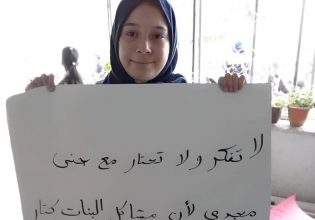 لا تفكر ولا تحتار مع حنى
لأن مشاكل البنات كتار